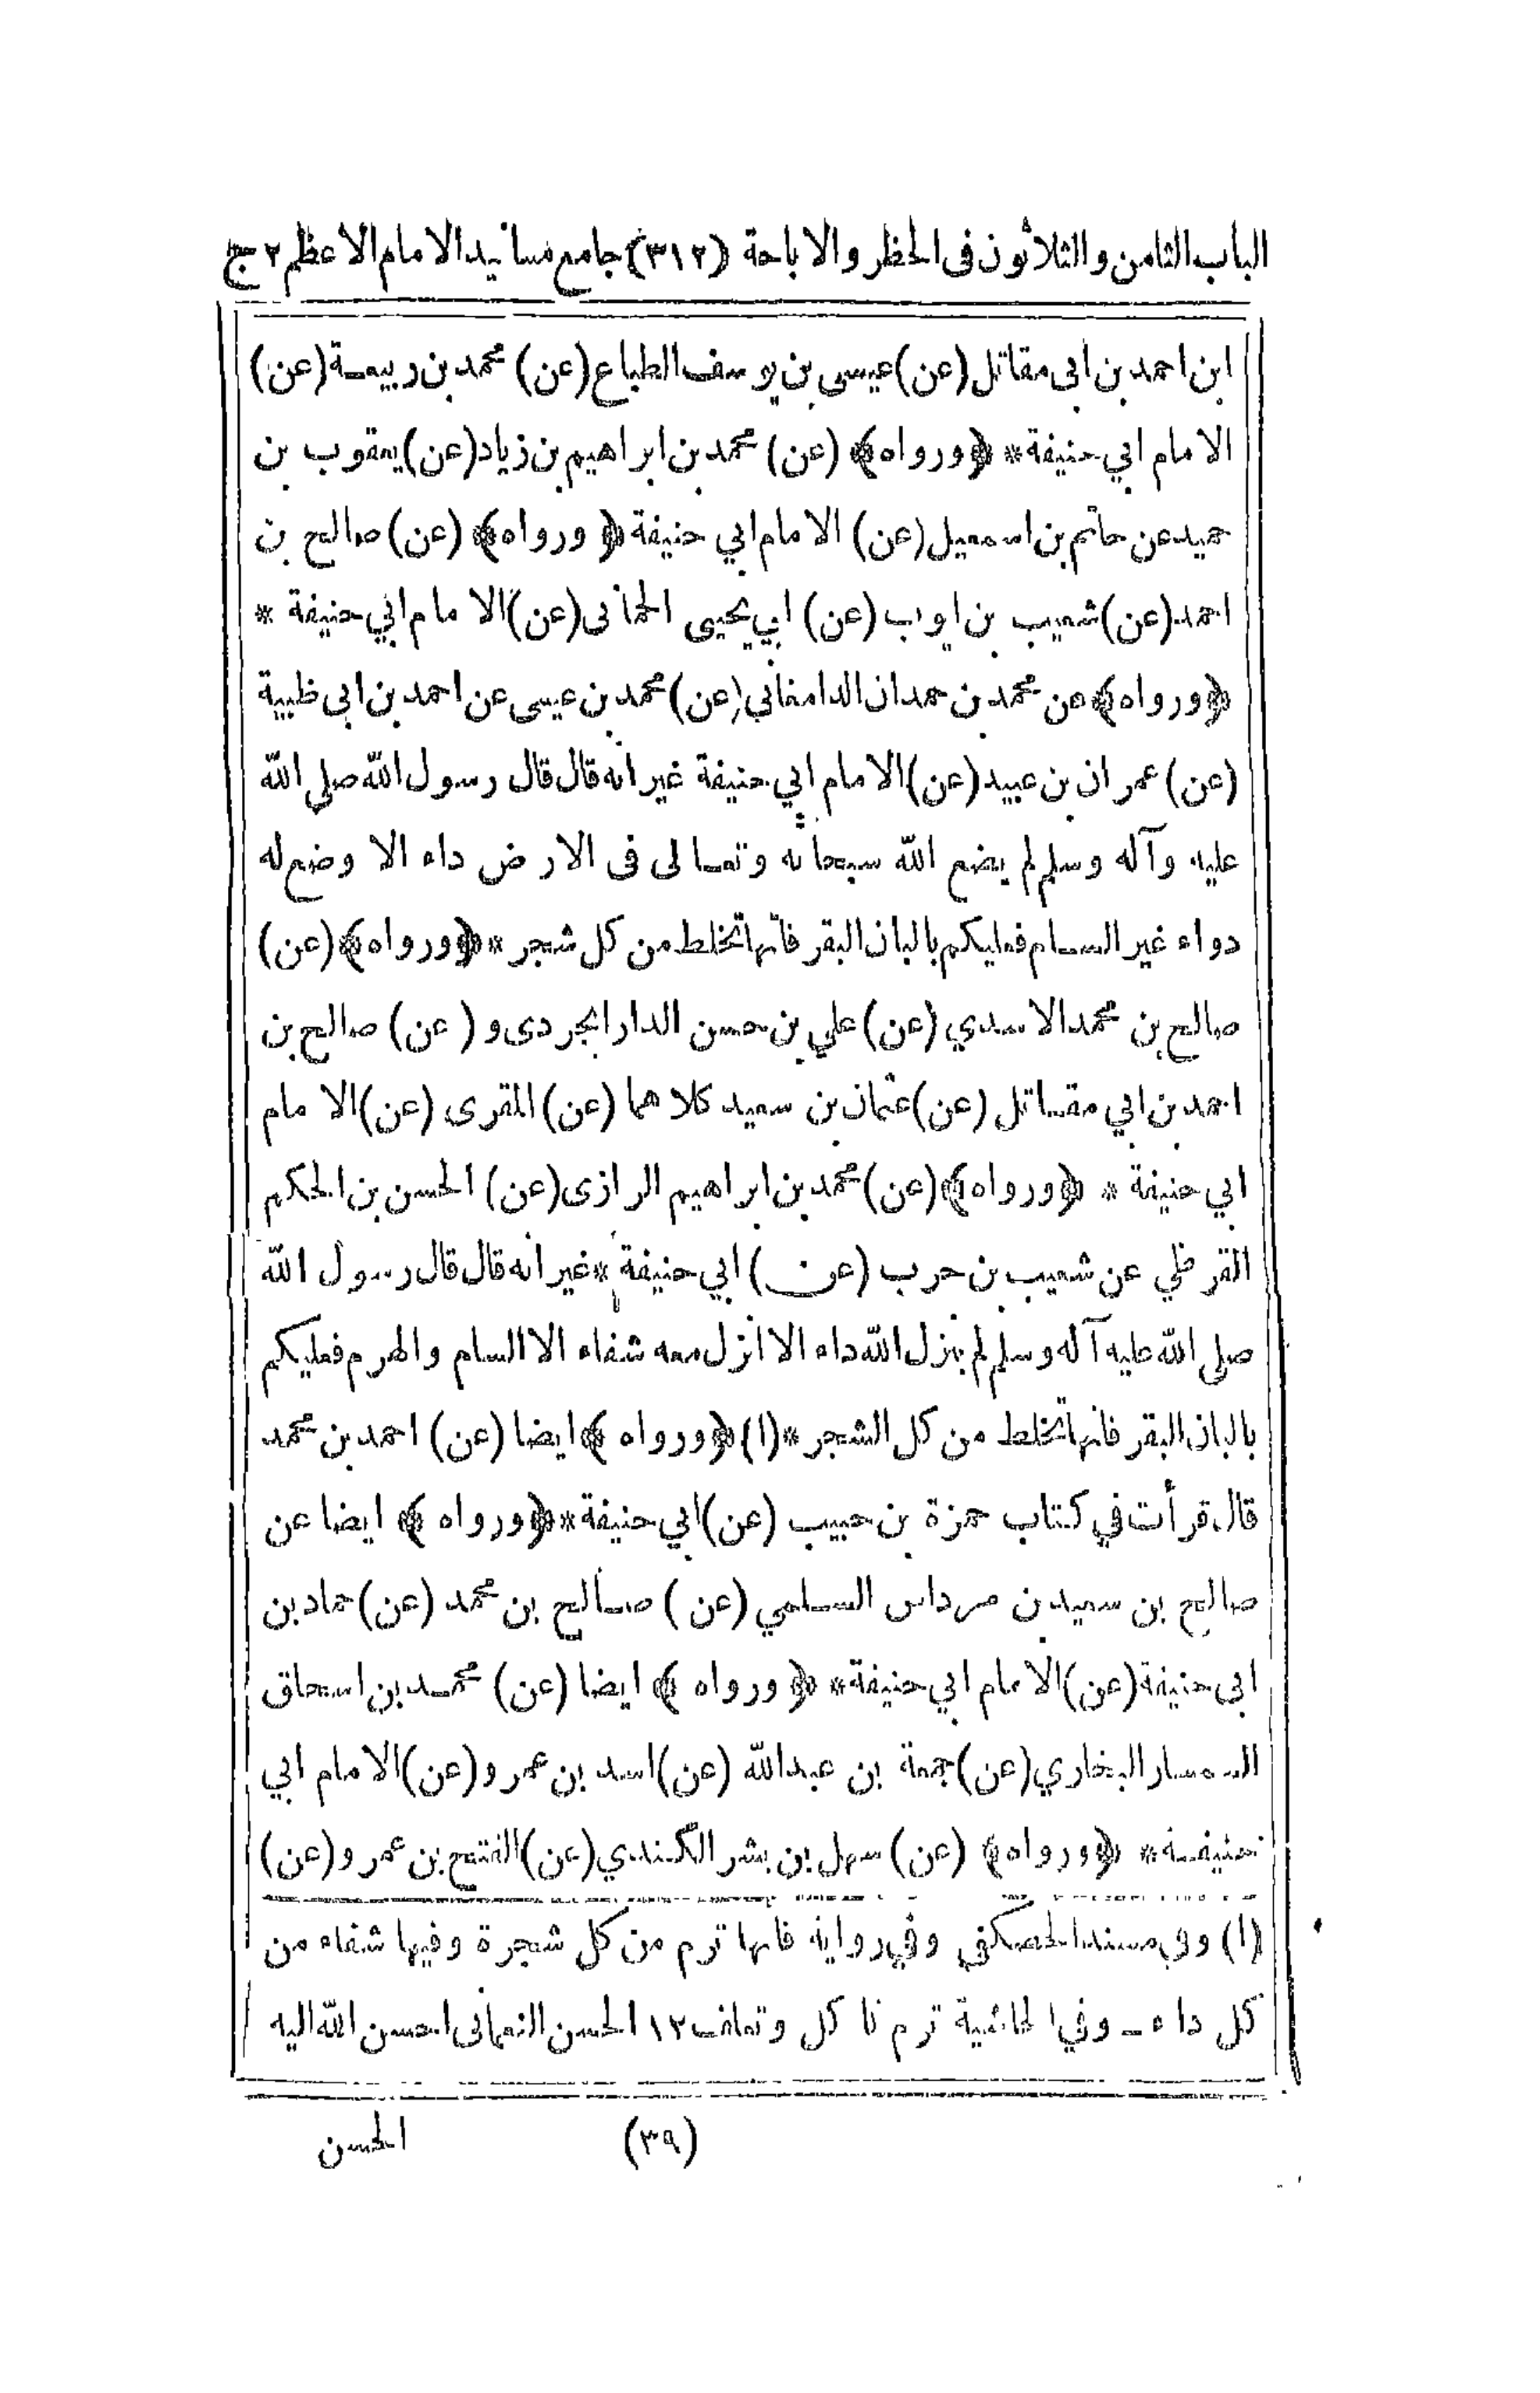 الباب الثامن والثلاثون فى الحظر والاباحة (٣١٢) جامع مسانيد الامام الاعظم ٢ ج
ابن احمد بن ابى مقاتل (عن) عيسى بن يوسف الطباع (عن) محمد بن ربيعة (عن)
الامام ابي حنيفة * ﴿ورواه﴾ (عن) محمد بن ابراهيم بن زياد (عن) يعقوب بن
حميد عن حاتم بن اسمعيل (عن) الامام ابي حنيفة ﴿ورواه﴾ (عن) صالح بن
احمد (عن) شعيب بن ايوب (عن) ابي يحيى الحمانى (عن) الامام ابي حنيفة *
﴿ورواه﴾ عن محمد بن حمدان الدامغاني (عن) محمد بن عيسى عن احمد بن ابى ظبية
(عن) عمران بن عبيد (عن) الامام ابي حنيفة غير انه قال قال رسول الله صلى الله
عليه وآله وسلم لم يضع الله سبحانه وتعالى فى الارض داء الا وضع له
دواء غير السام فعليكم بالبان البقر فانها تخلط من كل شجر * ﴿ورواه﴾ (عن)
صالح بن محمد الاسدي (عن) علي بن حسن الدارابجردى و (عن) صالح بن
احمد بن ابي مقاتل (عن) عثمان بن سعيد كلاهما (عن) المقرى (عن) الامام
ابي حنيفة * ﴿ورواه﴾ (عن) محمد بن ابراهيم الرازى (عن) الحسن بن الحكم
القرظي عن شعيب بن حرب (عن) ابي حنيفة * غير انه قال قال رسول الله
صلى الله عليه آله وسلم لم ينزل الله داء الا انزل معه شفاء الا السام والهرم فعليكم
بالبان البقر فانها تخلط من كل الشجر * (١) ﴿ورواه﴾ ايضا (عن) احمد بن محمد
قال قرأت في كتاب حمزة بن حبيب (عن) ابي حنيفة * ﴿ورواه﴾ ايضا عن
صالح بن سعيد بن مرداس السلمي (عن) صالح بن محمد (عن) حماد بن
ابى حنيفة (عن) الامام ابي حنيفة * ﴿ورواه﴾ ايضا (عن) محمد بن اسحاق
السمسار البخاري (عن) جمعة بن عبدالله (عن) اسد بن عمرو (عن) الامام ابي
حنيفة * ﴿ورواه﴾ (عن) سهل بن بشر الكندي (عن) الفتح بن عمرو (عن)
(١) وفى مسند الحصكفي وفي رواية فانها ترم من كل شجرة وفيها شفاء من
كل داء ـ وفي الحاشية ترم تاكل وتعلف ١٢ الحسن النعمانى احسن الله اليه
(٣٩) الحسن